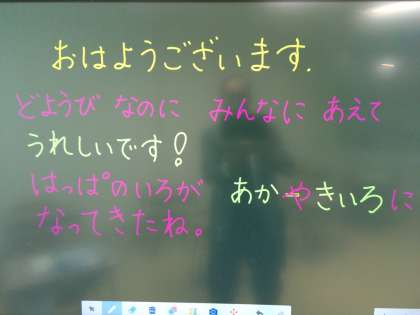 おはようございます.
どようび なのに みんなに あえて
うれしいです!
はっぱのいろが あかやきいろに
なってきたね。